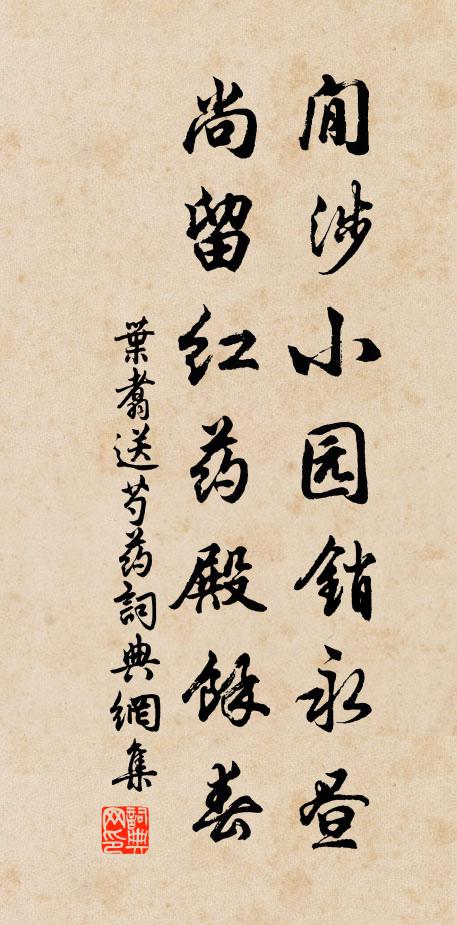 閒涉小园銷永昼
尚留红药殿餘春
葉翥送芍药詞典網集
詞典网印